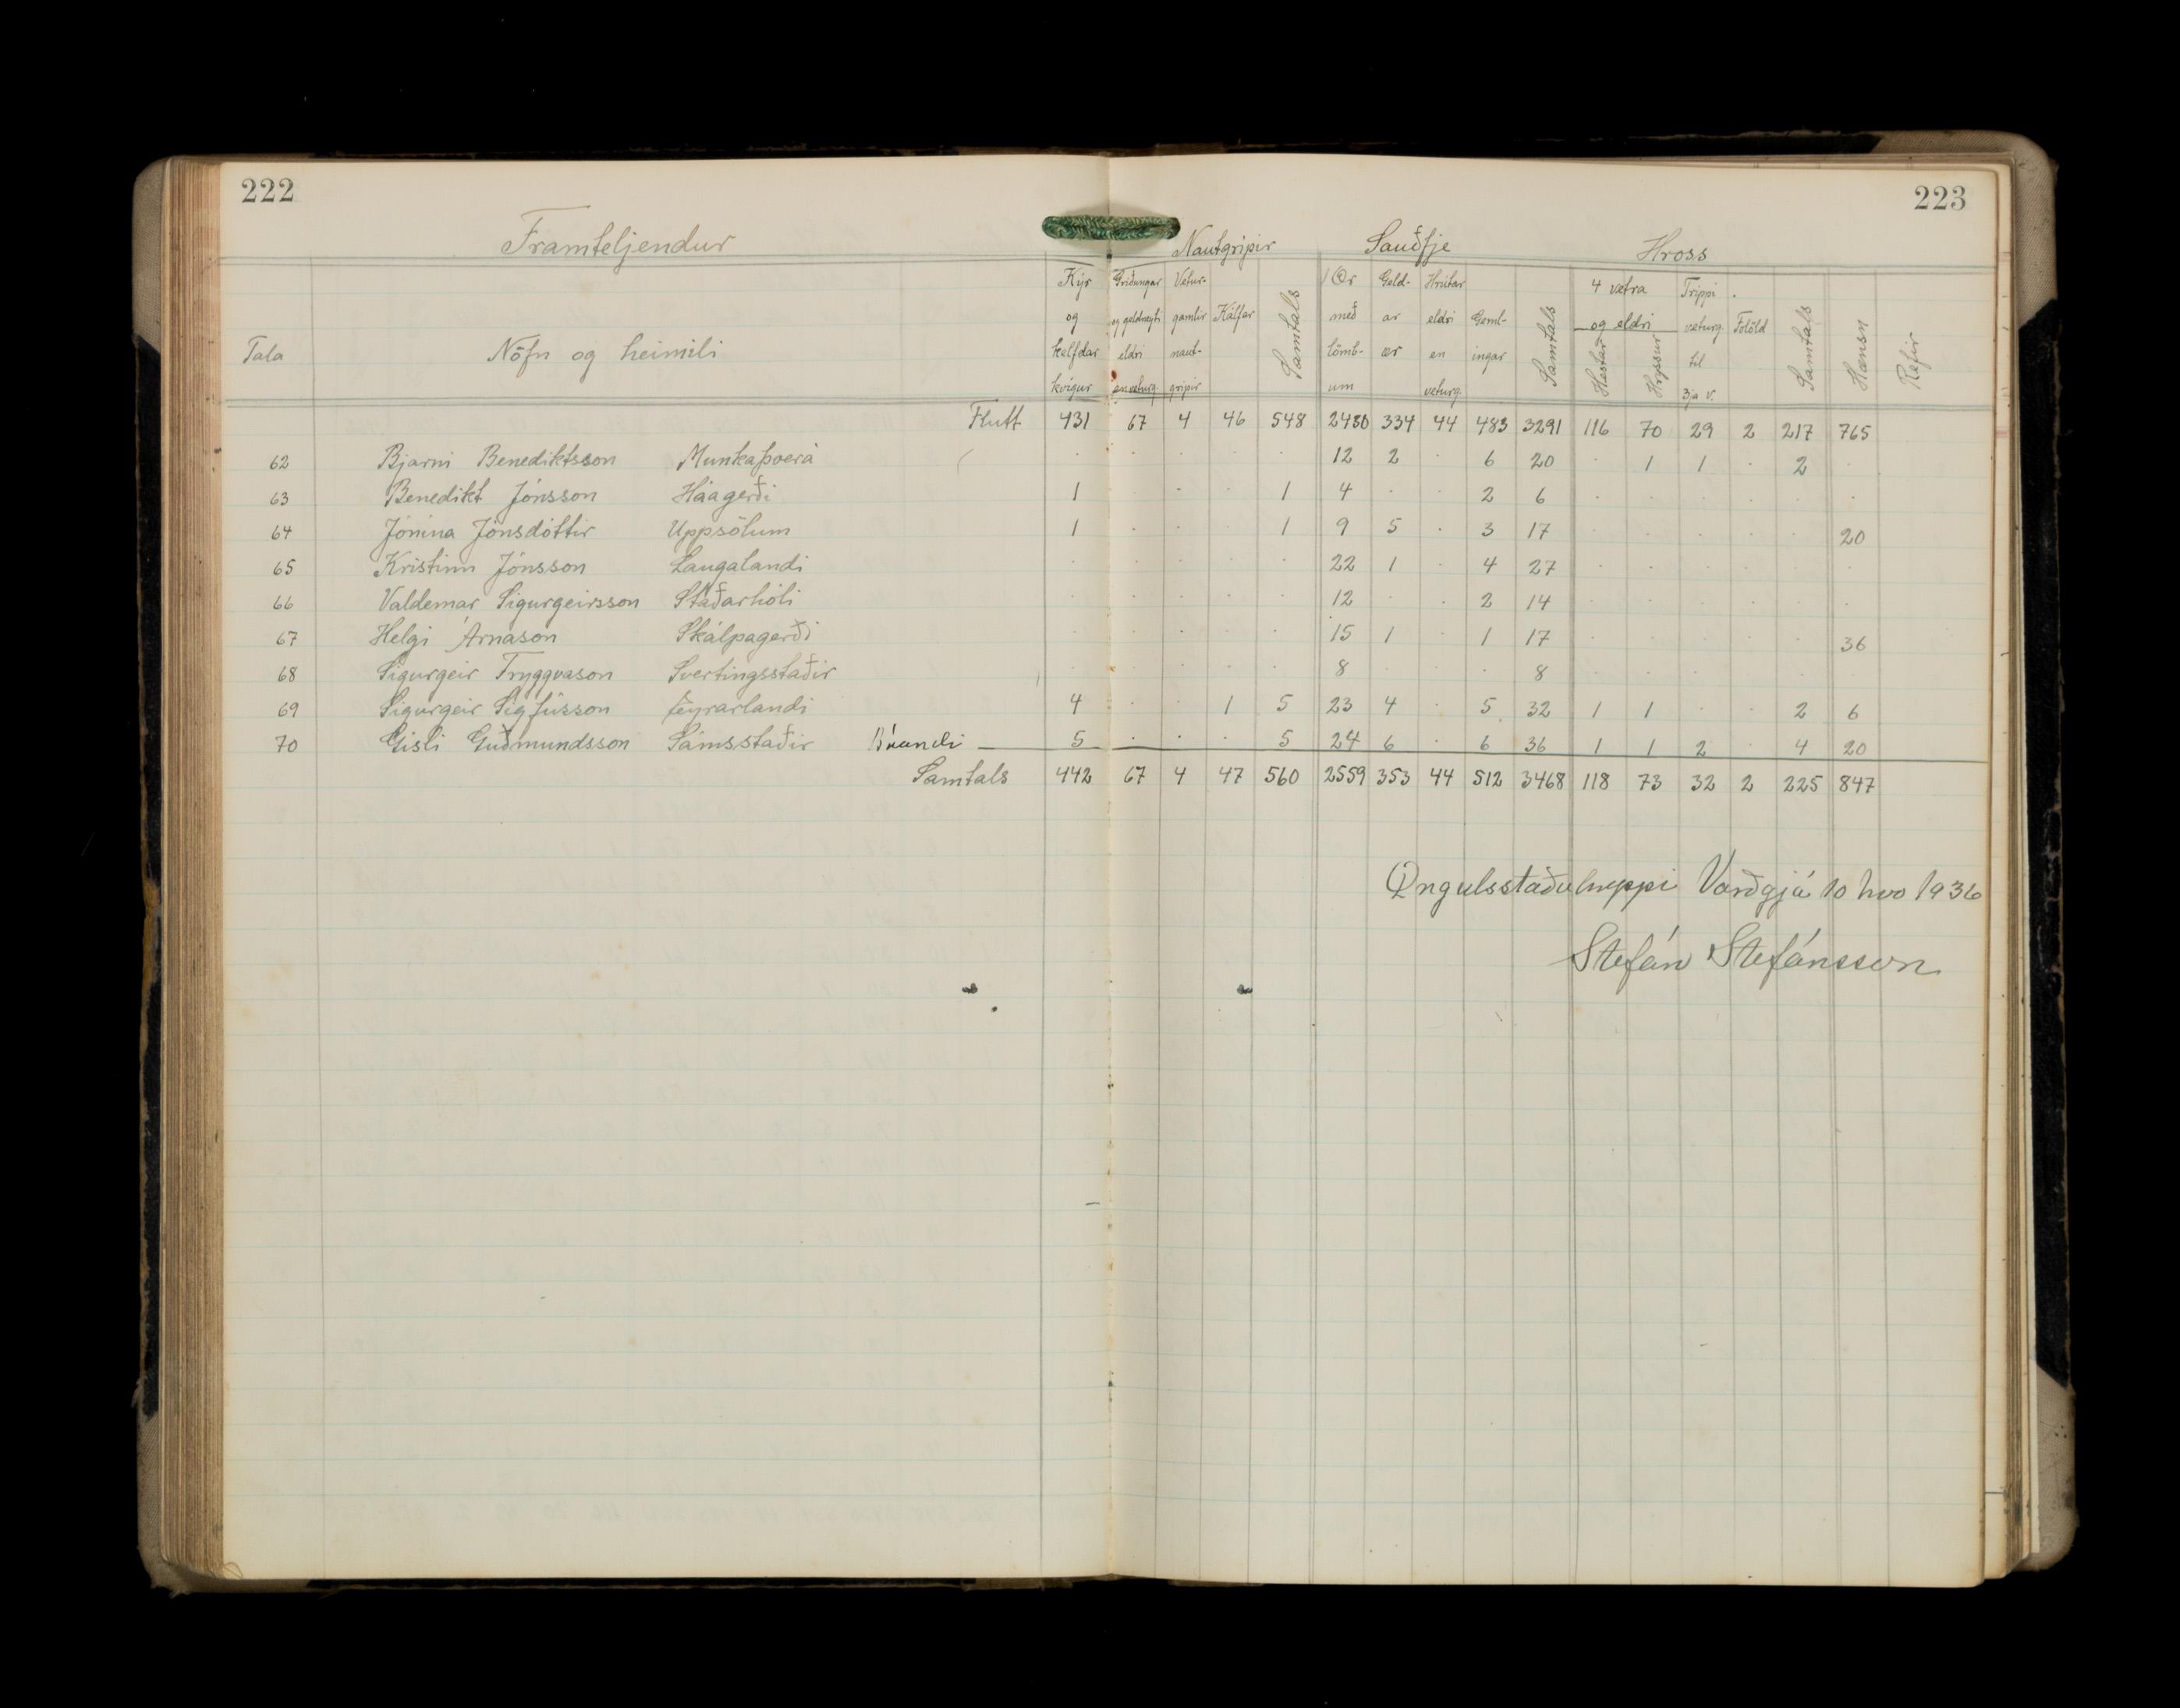 222
223
Framteljendur
Nautgripir Sauðfje Hross
Tala Nöfn og heimili Kýr og kelfdar kvígur Griðungar og geldneyti eldri en veturg. Vetur-gamlir naut-gripir Kálfar Samtals Ær með lömb-um Geld-ar ær Hrútar eldri en veturg. Geml-ingar Samtals 4 vetra og eldri Hestar Hryssur Trippi veturg. til 3ja v. Folöld Samtals Hænsn Refir
Flutt 431 67 4 46 548 2430 334 44 483 3291 116 70 29 2 217 765
62 Bjarni Benediktsson Munkaþverá · · · · · 12 2 · 6 20 · 1 1 · 2 ·
63 Benedikt Jónsson Háagerði 1 · · · 1 4 · · 2 6 · · · · · ·
64 Jónína Jónsdóttir Uppsölum 1 · · · 1 9 5 · 3 17 · · · · · 20
65 Kristinn Jónsson Laugalandi · · · · · 22 1 · 4 27 · · · · · ·
66 Valdemar Sigurgeirsson Staðarhóli · · · · · 12 · · 2 14 · · · · · ·
67 Helgi Árnason Skálpagerði · · · · · 15 1 · 1 17 · · · · · 36
68 Sigurgeir Tryggvason Svertingsstaðir · · · · · 8 · · · 8 · · · · · ·
69 Sigurgeir Sigfússon Eyrarlandi 4 · · 1 5 23 4 · 5 32 1 1 · · 2 6
70 Gísli Guðmundsson Sámsstaðir Búandi 5 · · · 5 24 6 · 6 36 1 1 2 · 4 20
Samtals 442 67 4 47 560 2559 353 44 512 3468 118 73 32 2 225 847
Öngulsstaðahreppi Varðgjá 10 1936
Stefán Stefánsson